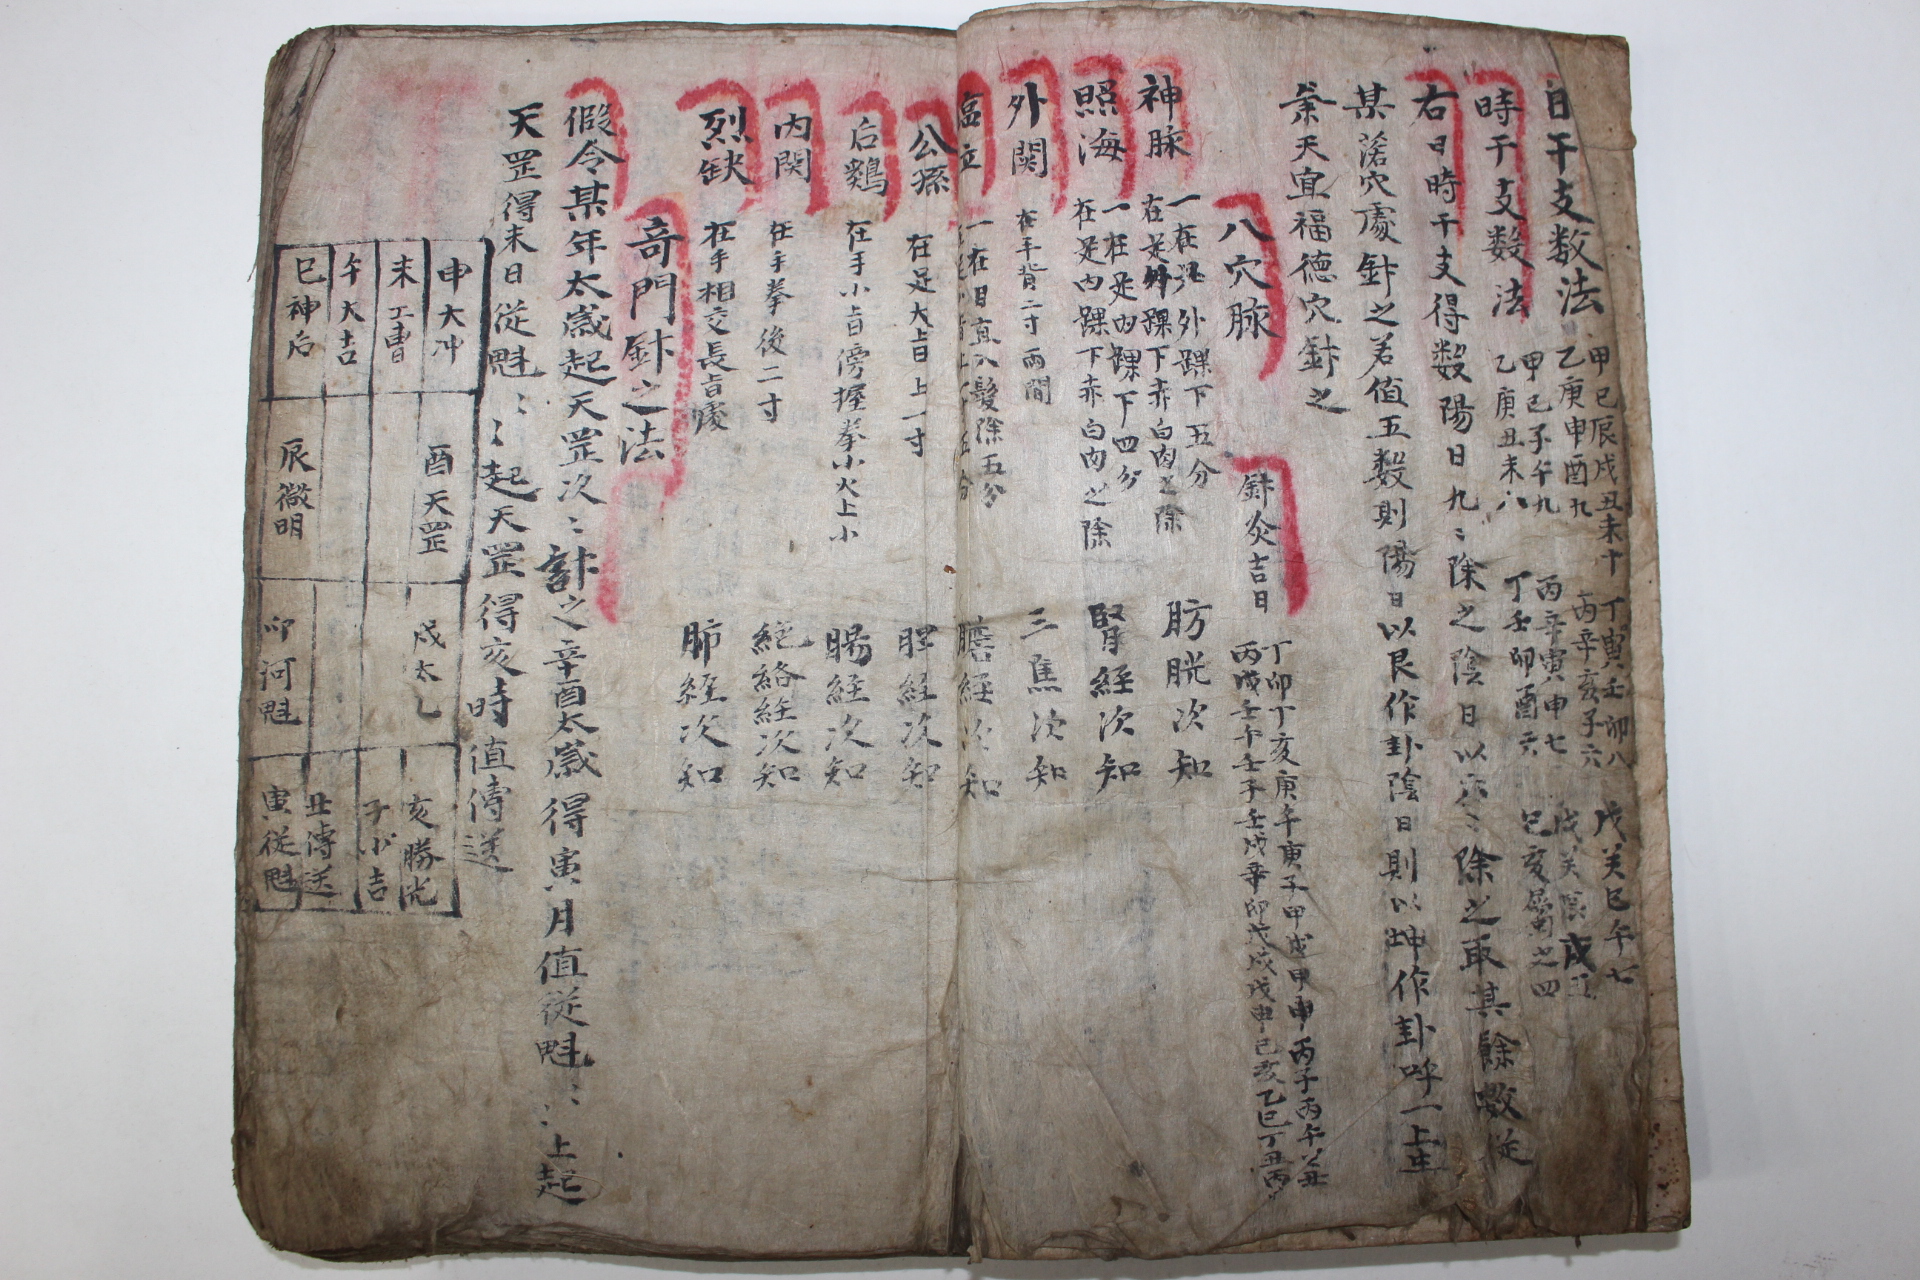 日干支数法 甲己辰戌丑未十 丁寅壬卯八 戊癸巳午七
乙庚申酉九 丙辛亥子六
時干支数法 甲己子午九 丙辛寅申七 戊癸辰戌五
乙庚丑未八 丁壬卯酉六 巳亥屬之四
右日時干支得数陽日九〻除之陰日以六〻除之取其餘数從
某 穴處針之若值五数則陽日以艮作卦陰日則以坤作卦呼一上生
天宜福德穴針之
八穴脉 針灸吉日 丁卯丁亥庚午庚子甲戌甲申丙子丙午
丙戌壬午壬子壬戌辛卯戊戌戊申己亥乙巳丁丑丙
神脉 一在 外踝下五分 肪胱次知
在足外踝下赤白肉之除
照海 一在足内踝下四分 腎経次知
在足内踝下赤白肉之除
外関 在手背二寸兩間 三焦次知
一在目直入髮除五分 膽経次知
公孫 在足大旨上一寸 脾経次知
后鷄 在手小旨傍握拳小火上小 膓経次知
内関 在手拳後二寸 絡経次知
烈缺 在手相交長旨處 肺経次知
奇門針之法
假令某年太歲起天罡次〻計之辛酉太歲得寅月值從魁〻〻上起
天罡得未日從魁〻〻起天罡得亥時值傳送
申大冲 未工曹 午大吉 巳神后
酉天罡 辰徵明
戌太乙 卯河魁
亥勝光 子小吉 丑傳送 寅從魁